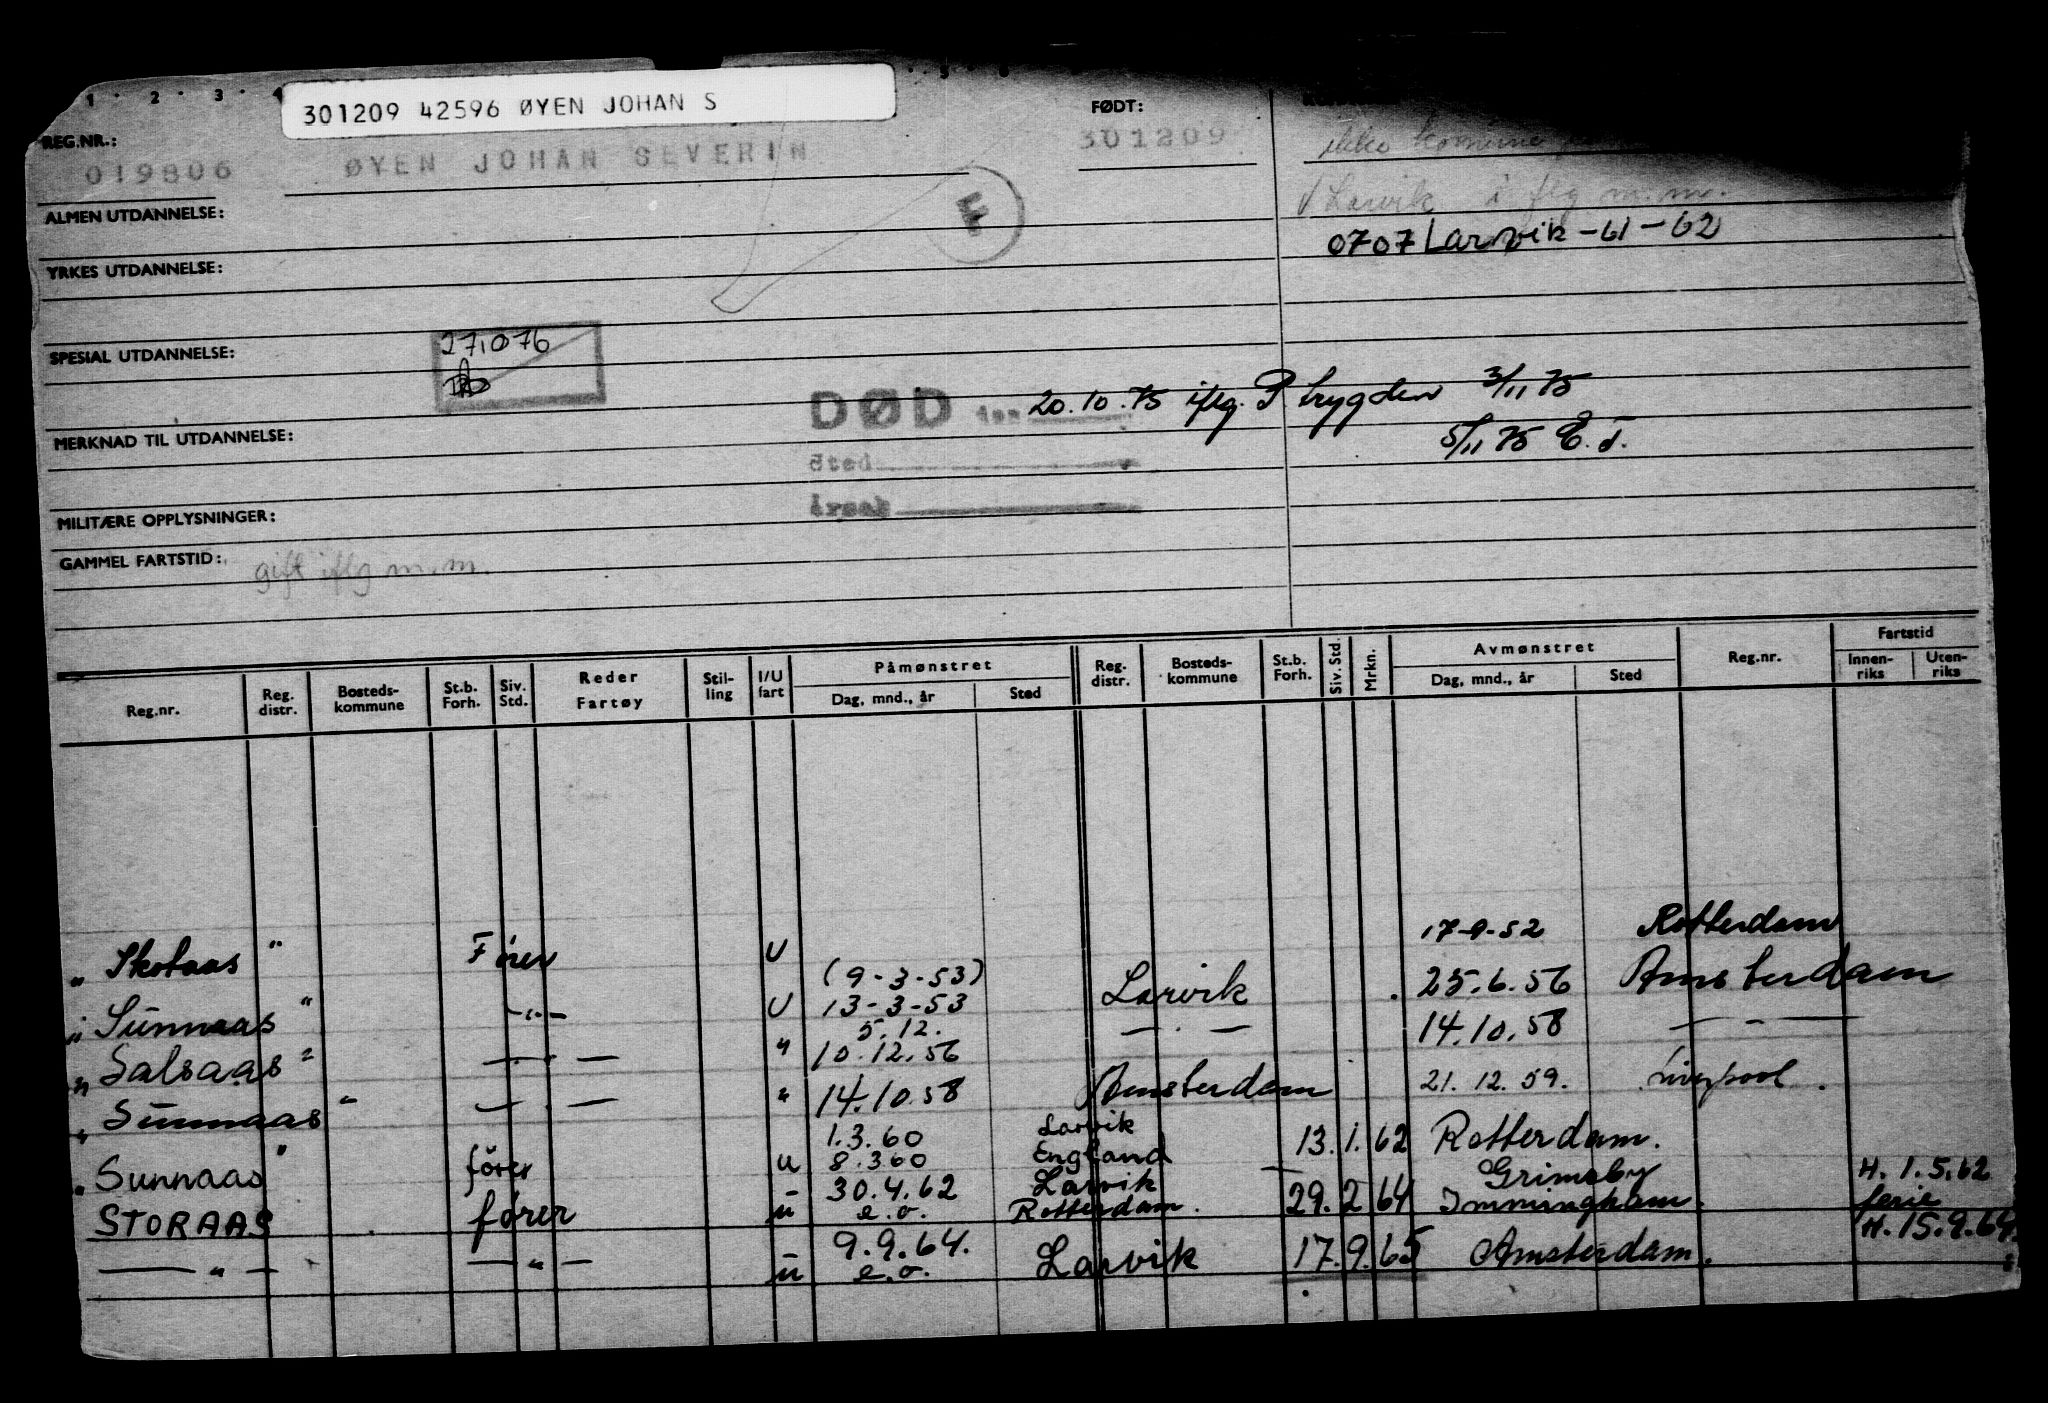 1 · 2 · 3 · 4 · 5 · 6
301209 42596 ØYEN JOHAN S
REG.NR.: FØDT:
019806 ØYEN JOHAN SEVERIN 301209
ikke komme
Larvik i flg m.m.
ALMEN UTDANNELSE:
0707 Larvik -61-62
YRKES UTDANNELSE:
SPESIAL UTDANNELSE:
27.076
DØD den 20.10.75 iflg. P trygden 3/11 75
MERKNAD TIL UTDANNELSE:
5/11 75 E.T.
Sted
Årsak
MILITÆRE OPPLYSNINGER:
GAMMEL FARTSTID: gift iflg m.m.
Reg.nr. Reg. distr. Bosteds-kommune St.b. Forh. Siv. Std. Reder Fartøy Stil-ling I/U fart Påmønstret Dag, mnd., år Sted Reg. distr. Bosteds-kommune St.b. Forh. Siv. Std. Mrkn. Avmønstret Dag, mnd., år Sted Reg.nr. Fartstid Innen-riks Uten-riks
" Skotaas " Fører U 17-9-52 Rotterdam
(9-3-53)
" Sunnaas " -"- U 13-3-53 Larvik 25.6.56 Amsterdam
5.12.
" Salsaas " — " — " 10.12.56 — " — 14.10.58 — " —
" Sunnaas " — " — " 14.10.58 Amsterdam 21.12.59. Liverpool.
1.3.60 Larvik
" Sunnaas " fører u 8.3 60 England 13.1.62 Rotterdam.
30.4.62 Larvik Grimsby H. 1.5.62
STORAAS fører u e.o. Rotterdam. 29.2 64 Immingham. ferie
9.9.64. H. 15.9.64
— " — — " — u e.o. Larvik 17.9.65 Amsterdam.